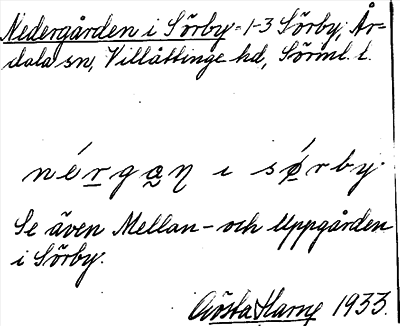 Nedergården i Sörby = 1-3 Sörby, År-
dala sn, Villåttinge hd, Sörml. l.
nérgan i sǿrby.
Se även Mellan- och Uppgården
i Sörby.
Gösta Harne 1933.